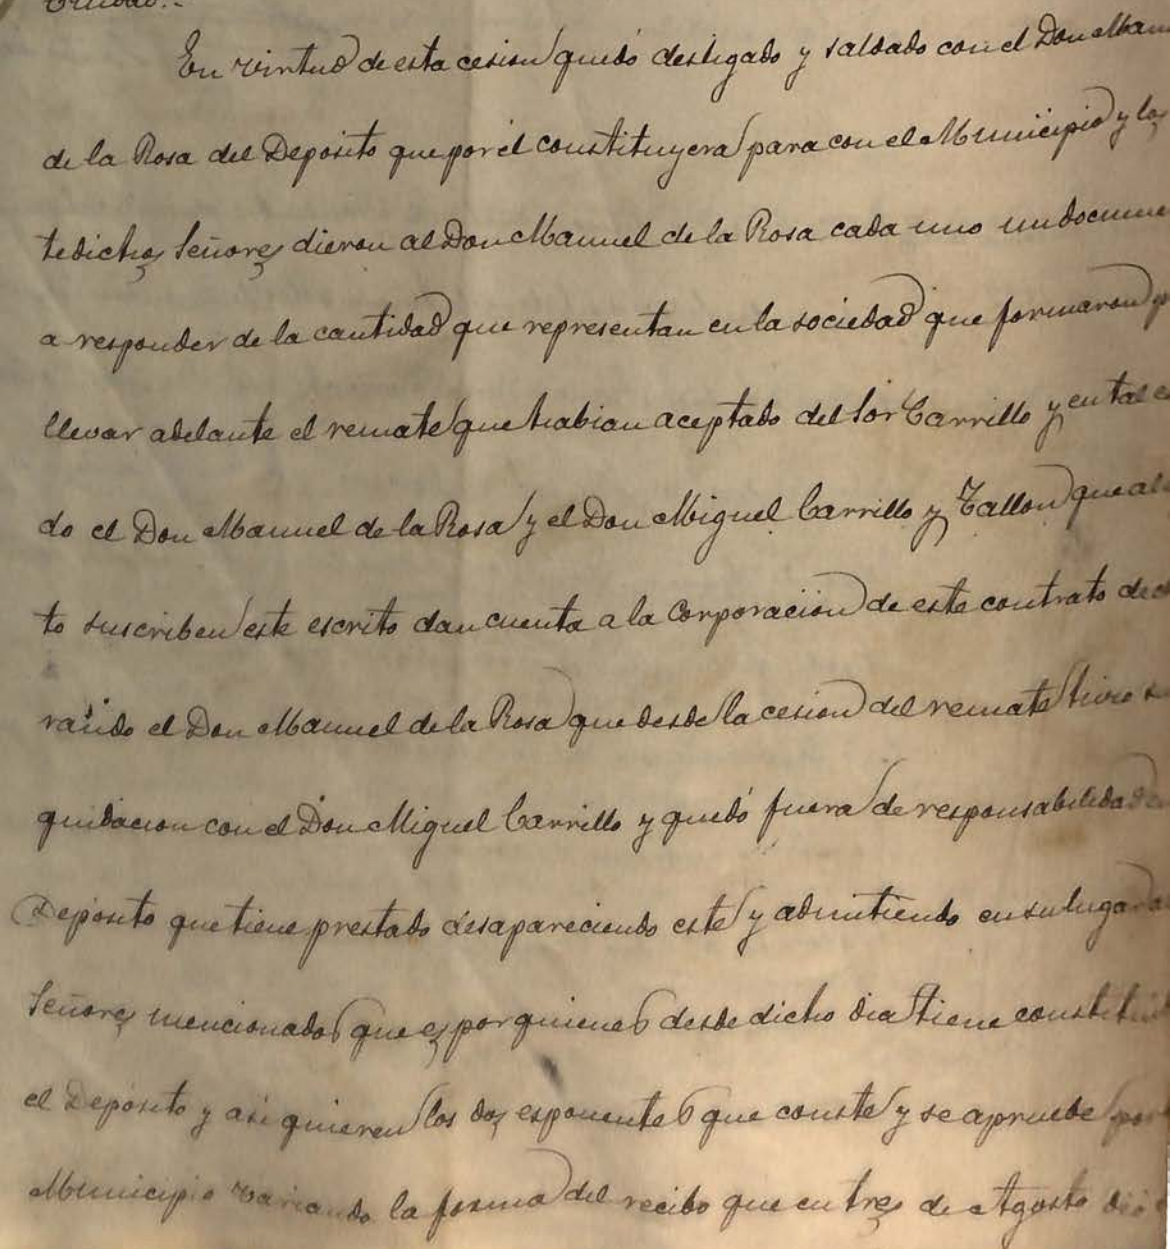 En virtud de esta cesion quedó desligado y saldado con el Don Man
de la Rosa del Deposito que por él constituyera para con el Municipio y los
tedichos Señores dieron al Don Manuel de la Rosa cada uno un docume
a responder de la cantidad que representan en la sociedad que formaron p
llevar adelante el remate que habian aceptado del Sor Carrillo y en tal e
do el Don Manuel de la Rosa y el Don Miguel Carrillo y Tallon que al
to suscriben este escrito dan cuenta a la Corporacion de este contrato de
rando el Don Manuel de la Rosa que desde la cesion del remate hizo
quidacion con el Don Miguel Carrillo y quedó fuera de responsabilidad
Deposito que tiene prestado desapareciendo este y admitiendo en su lugar
Señores mencionados que es por quienes desde dicho dia tiene constitui
el Deposito y asi quieren los dos esponentes que conste y se apruebe por
Municipio variando la forma del recibo que en tres de Agosto dió